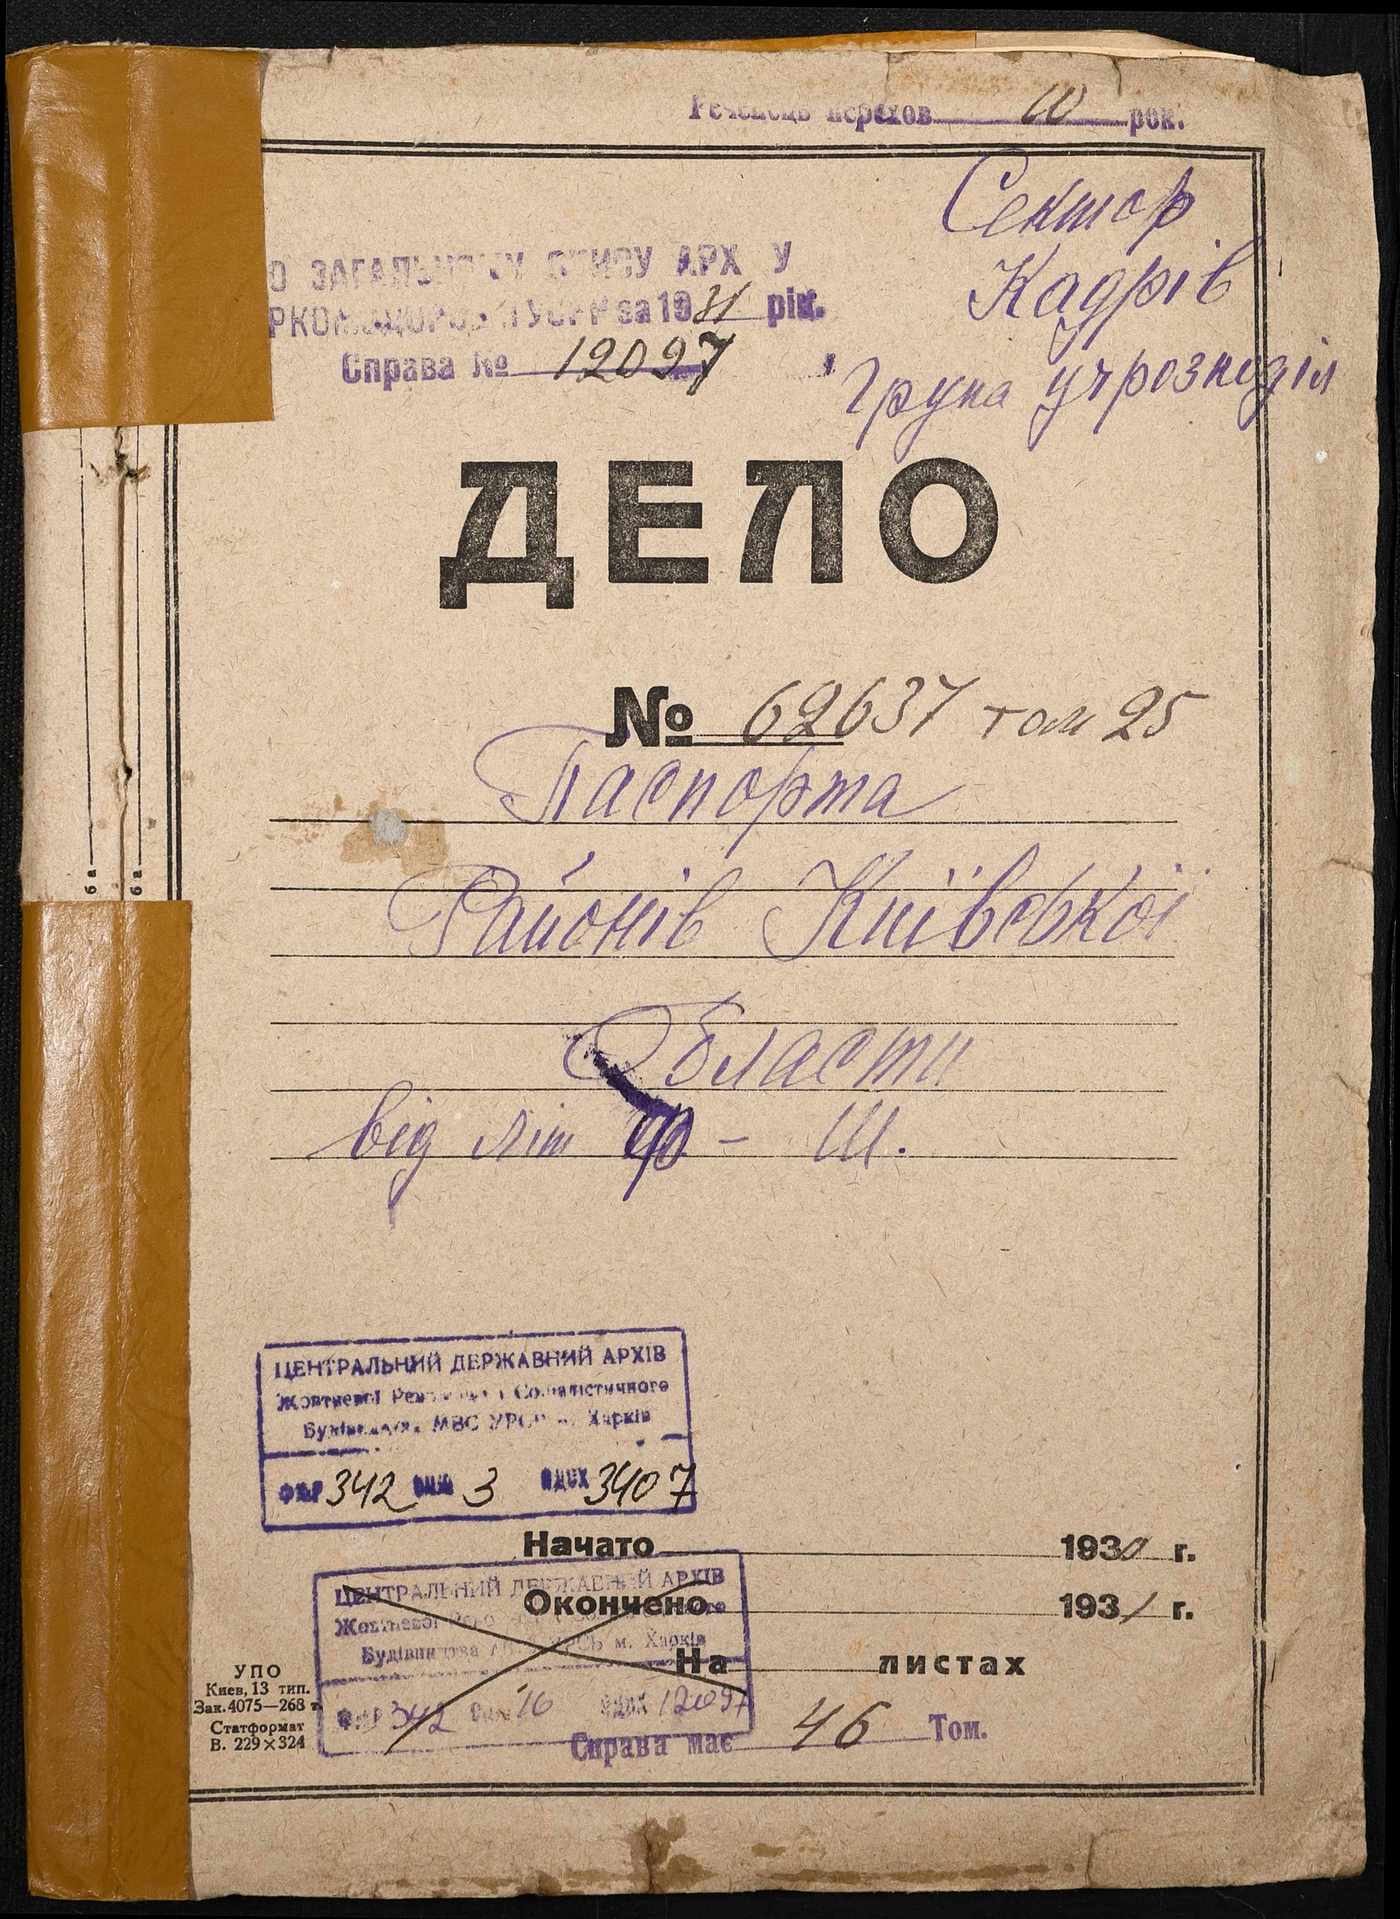 Реченець перехов 10 рок.
Сектор
Кадрів
Група учрозподіл
О ЗАГАЛЬНОМУ ОПИСУ АРХ У
за 1931 рік.
Справа № 12097
ДЕЛО
№ 62637 том 25
Паспорта
Районів Київської
Области
від літ Ф – Ш.
ба
ба
ЦЕНТРАЛЬНИЙ ДЕРЖАВНИЙ АРХІВ
Жовтневої Революції і Соціалістичного
Будівництва МВС УРСР м. Харків
ФНР 342 опис 3 одсх 3407
Начато 1930 г.
ЦЕНТРАЛЬНИЙ ДЕРЖАВНИЙ АРХІВ
Окончено 1931 г.
Жовтневої
Будівництва УРСР м. Харків
На листах
342 16 12097
Справа має 46 Том.
УПО
Киев, 13 тип.
Зак. 4075—268 т.
Статформат
В. 229×324